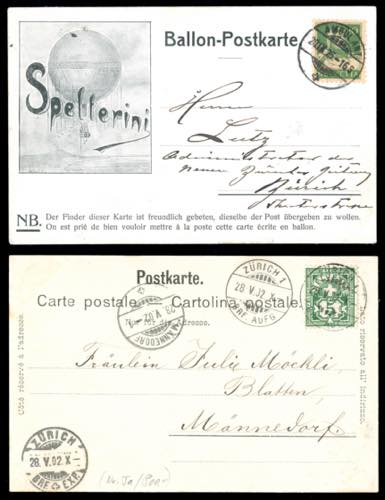 Ballon-Postkarte
Spelterini
Herrn
Lutz
Administrator der
Neuen Zürcher Zeitung
Zürich
NB. Der Finder dieser Karte ist freundlich gebeten, dieselbe der Post übergeben zu wollen.
On est prié de bien vouloir mettre à la poste cette carte écrite en ballon.
Postkarte.
Carte postale. Cartolina postale.
Nur für die Adresse.
Côté réservé à l'adresse.
Lato riservato all' indirizzo.
ZÜRICH 1
28.V.02.X
BRF. AUFG.
MÄNNEDORF
28.V.02
Fräulein Julie Möckli,
Blatten,
Männedorf.
ZÜRICH 1
28.V.02.X
BRF. EXP.